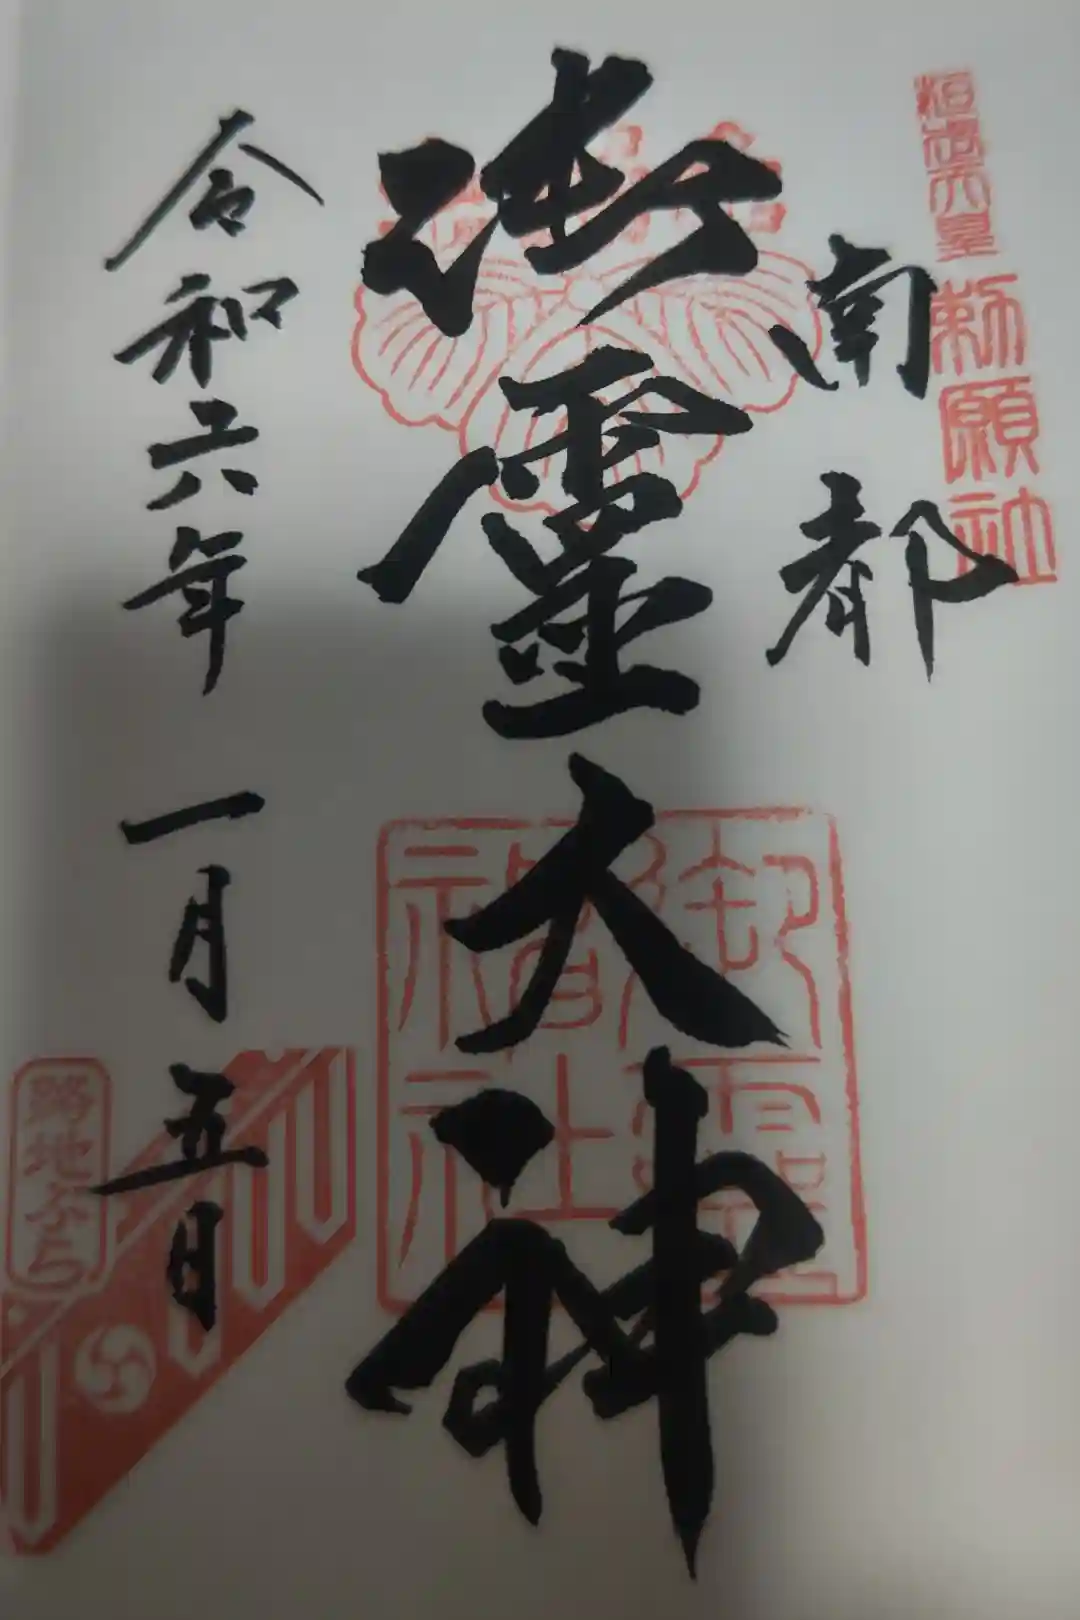 桓武天皇
勅願社
南都
御霊大神
御霊神社
令和六年 一月五日
路地ぶら